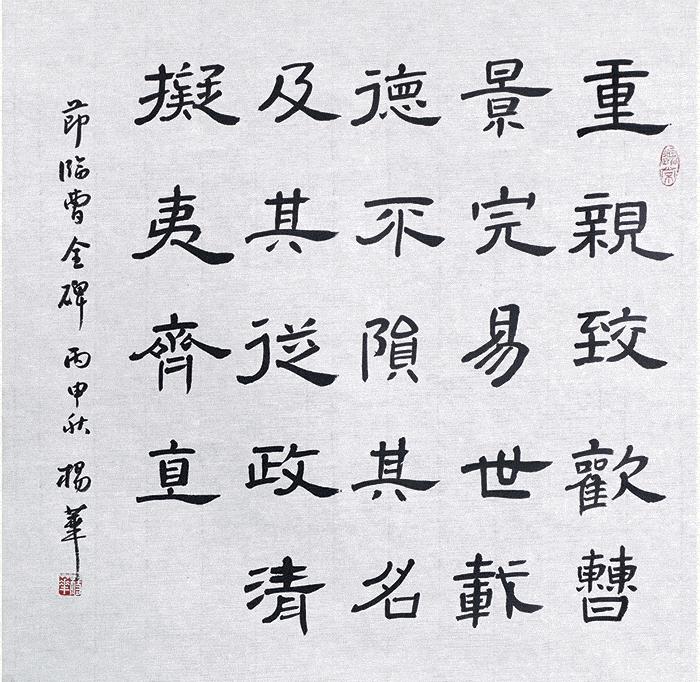 重親致歡曹
景完易世載
德不隕其名
及其從政清
擬夷齊直
節临曹全碑 丙申秋 楊華